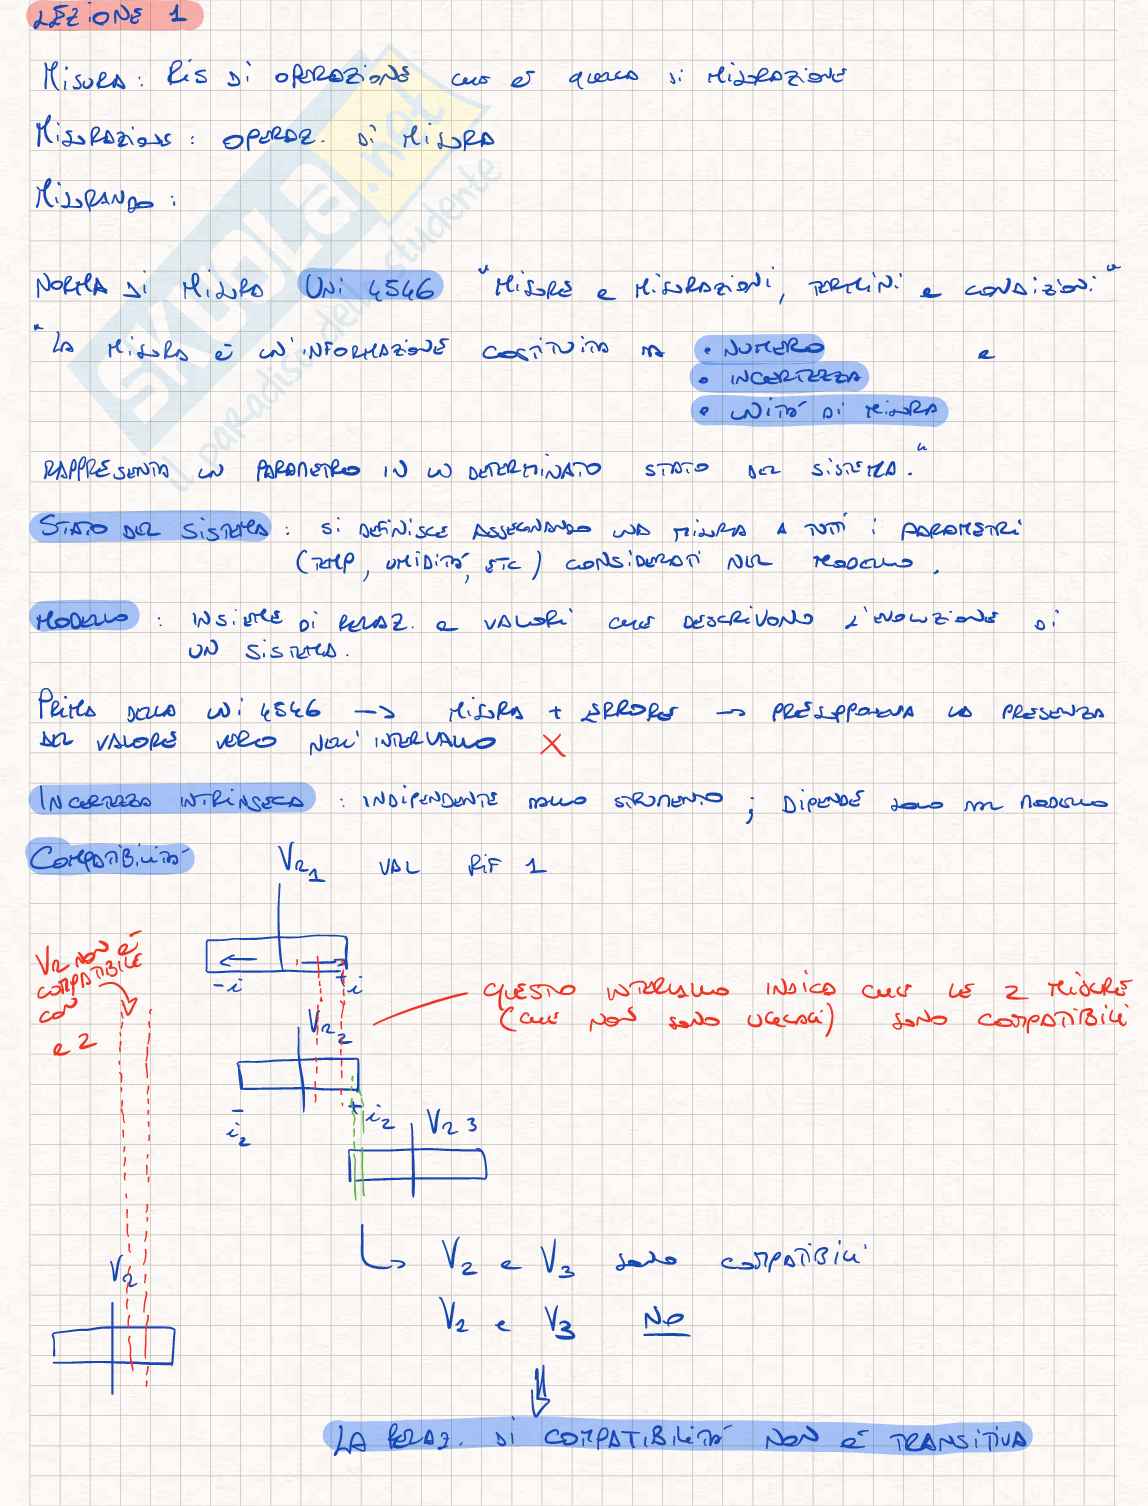 LEZIONE 1
MISURA : RIS DI OPERAZIONE CHE È QUELLA DI MISURAZIONE
MISURAZIONE : OPERAZ. DI MISURA
MISURANDO :
NORMA DI MISURA UNI 4546 "MISURE E MISURAZIONI, TERMINI E CONDIZIONI"
"LA MISURA È UN'INFORMAZIONE COSTITUITA DA • NUMERO E
• INCERTEZZA
• UNITÀ DI MISURA
RAPPRESENTA UN PARAMETRO IN UN DETERMINATO STATO DEL SISTEMA."
STATO DEL SISTEMA : SI DEFINISCE ASSEGNANDO UNA MISURA A TUTTI I PARAMETRI
(TEMP, UMIDITÀ, ETC) CONSIDERATI NEL MODELLO.
MODELLO : INSIEME DI RELAZ. E VALORI CHE DESCRIVONO L'EVOLUZIONE DI
UN SISTEMA.
PRIMA DELLA UNI 4546 → MISURA + ERRORE → PRESUPPONEVA LA PRESENZA
DEL VALORE VERO NELL'INTERVALLO X
INCERTEZZA INTRINSECA : INDIPENDENTE DALLO STRUMENTO ; DIPENDE SOLO DAL MODELLO
COMPATIBILITÀ VR1 VAL RIF 1
VR NON È
COMPATIBILE
CON
E 2
-i +i
QUESTO INTERVALLO INDICA CHE LE 2 MISURE
(CHE NON SONO UGUALI) SONO COMPATIBILI
VR2
-i2 +i2
VR3
VR
V2 E V3 SONO COMPATIBILI
V2 E V3 NO
LA RELAZ. DI COMPATIBILITÀ NON È TRANSITIVA
SKUOLA.net
il paradiso dello studente